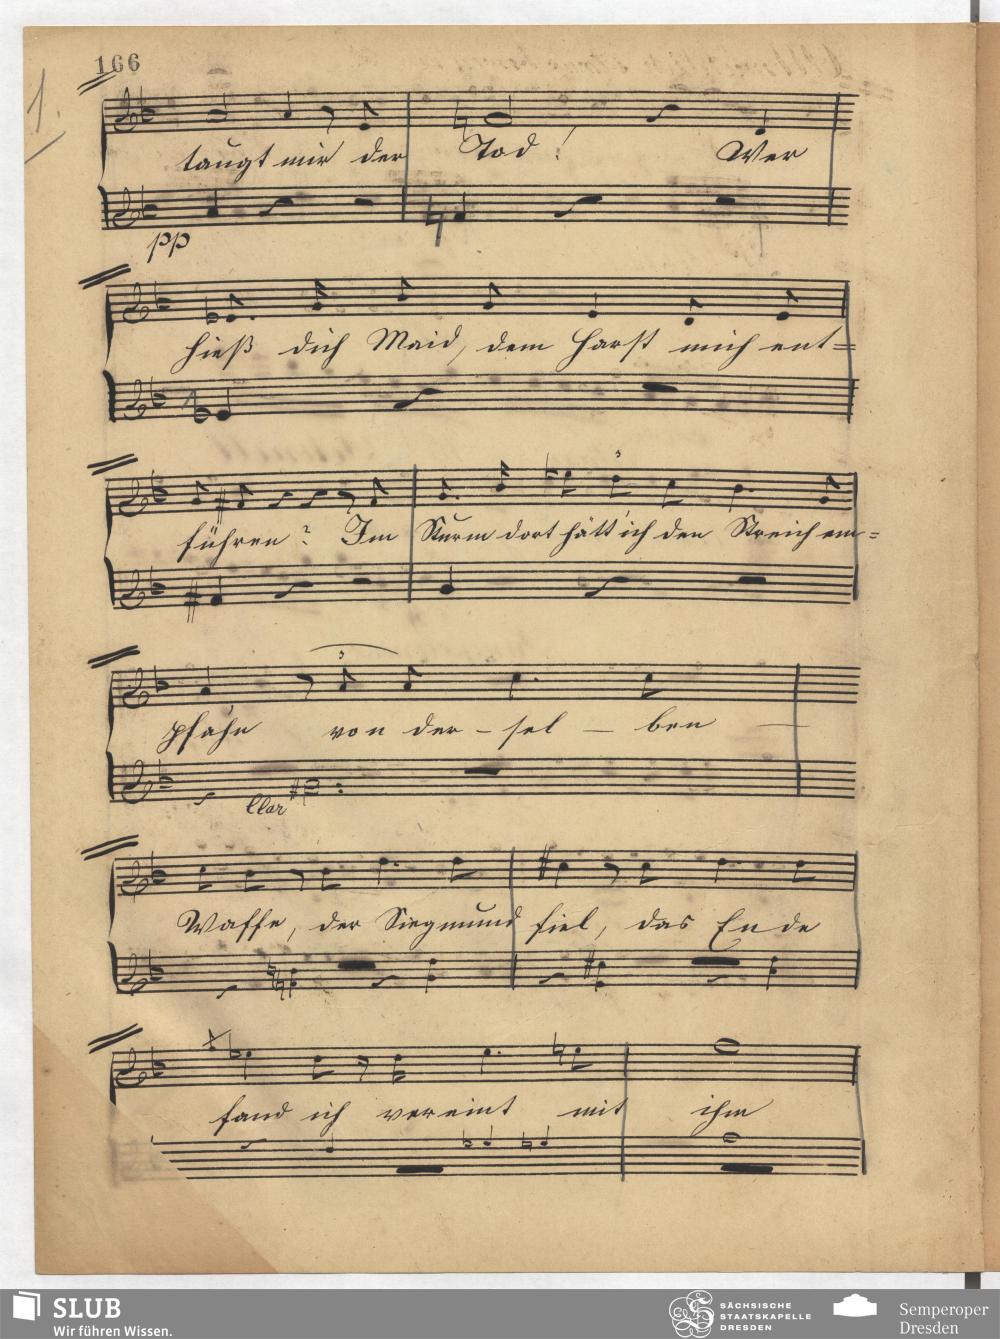 166
1.
taugt mir der Tod! Wer
pp
hieß dich Maid, dem Harst mich ent=
führen? Im Sturm dort hätt' ich den Streich em=
3
pfahn von der - sel - ben
3
Clar
Waffe, der Siegmund fiel, das Ende
fand ich vereint mit ihm
SLUB
Wir führen Wissen.
SÄCHSISCHE
STAATSKAPELLE
DRESDEN
Semperoper
Dresden